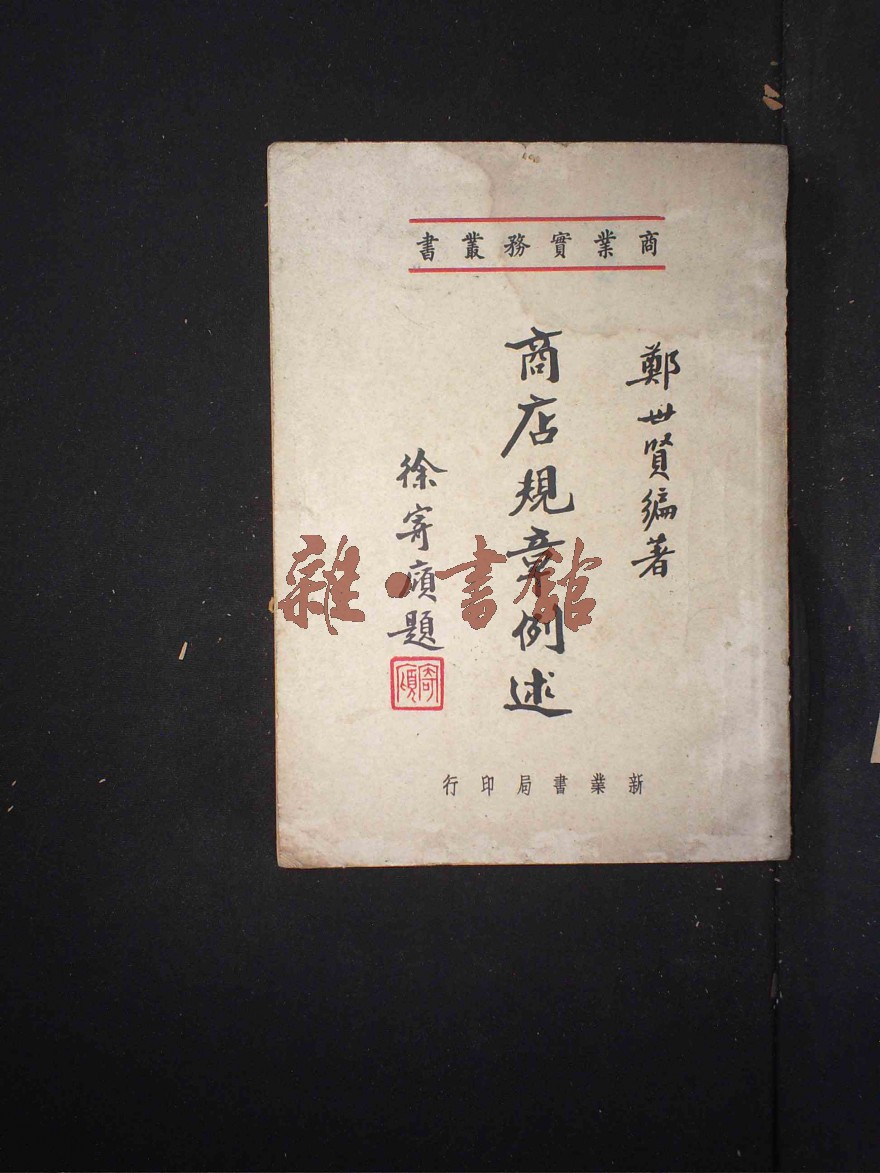 商業實務叢書
鄭世賢編著
商店規章例述
徐寄廎題
寄廎
新業書局印行
雜·書館